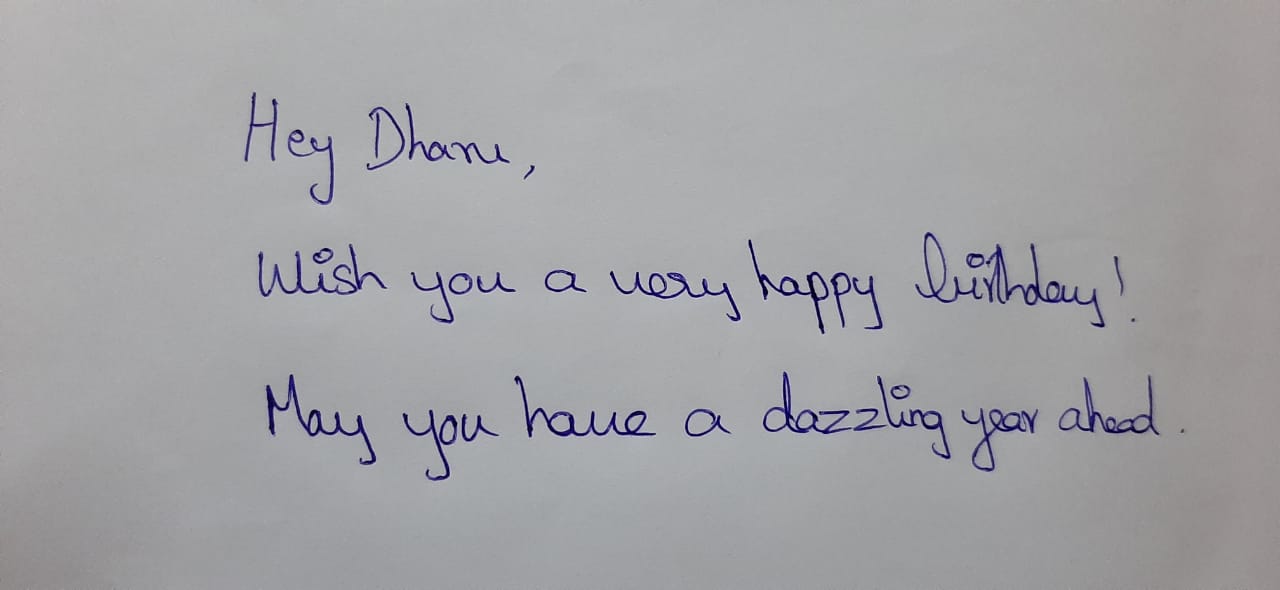 Hey Dhanu,
Wish you a very happy birthday!
May you have a dazzling year ahead.